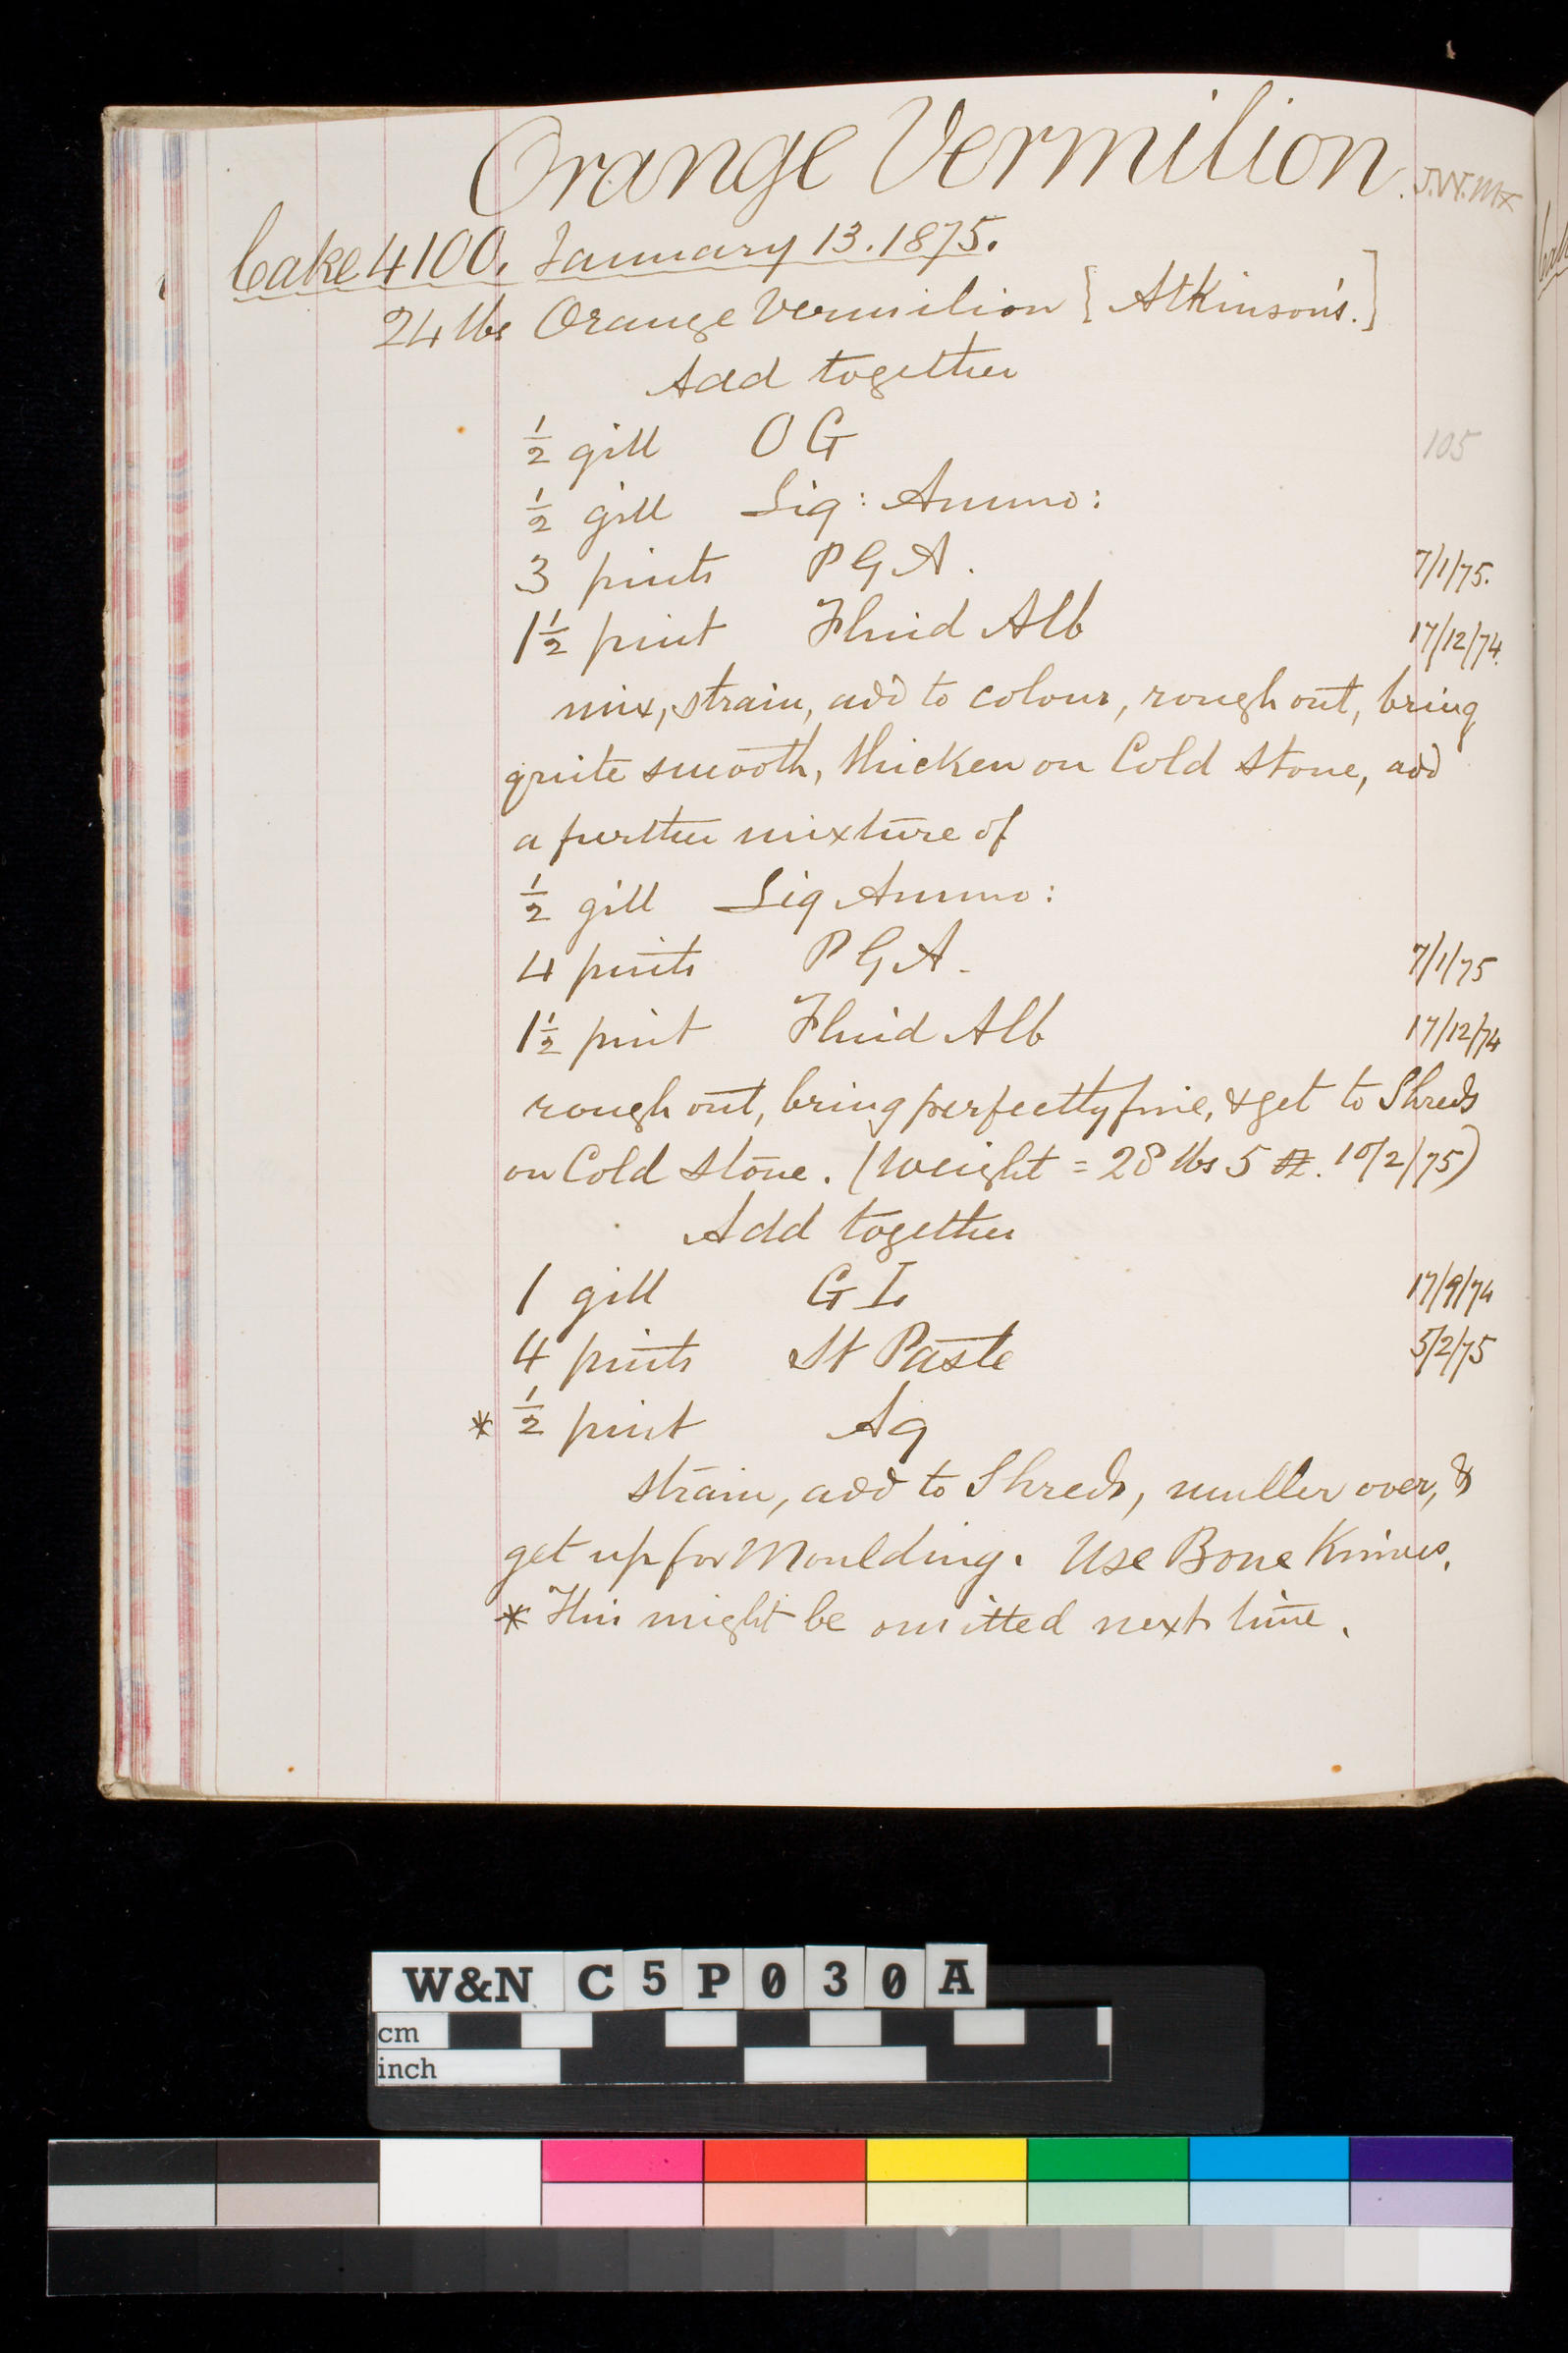 Orange Vermilion.
Cake 4100. January 13. 1875.
24 lbs Orange Vermilion [Atkinson's.]
Add together
½ gill O G
105
½ gill Liq: Ammo:
3 pints P G A. 7/1/75.
1½ pint Fluid Alb 17/12/74.
mix, strain, add to colour, rough out, bring
quite smooth, thicken on Cold Stone, add
a further mixture of
½ gill Liq Ammo:
4 pints P G A. 7/1/75
1½ pint Fluid Alb 17/12/74
rough out, bring perfectly fine, & get to Shreds
on Cold Stone. (Weight = 28 lbs 5 oz. 10/2/75)
Add together
1 gill G L 17/9/74
4 pints St Paste 5/2/75
* ½ pint Aq
strain, add to Shreds, muller over, &
get up for Moulding. Use Bone Knives.
* This might be omitted next time.
W&N C5P030A
cm
inch